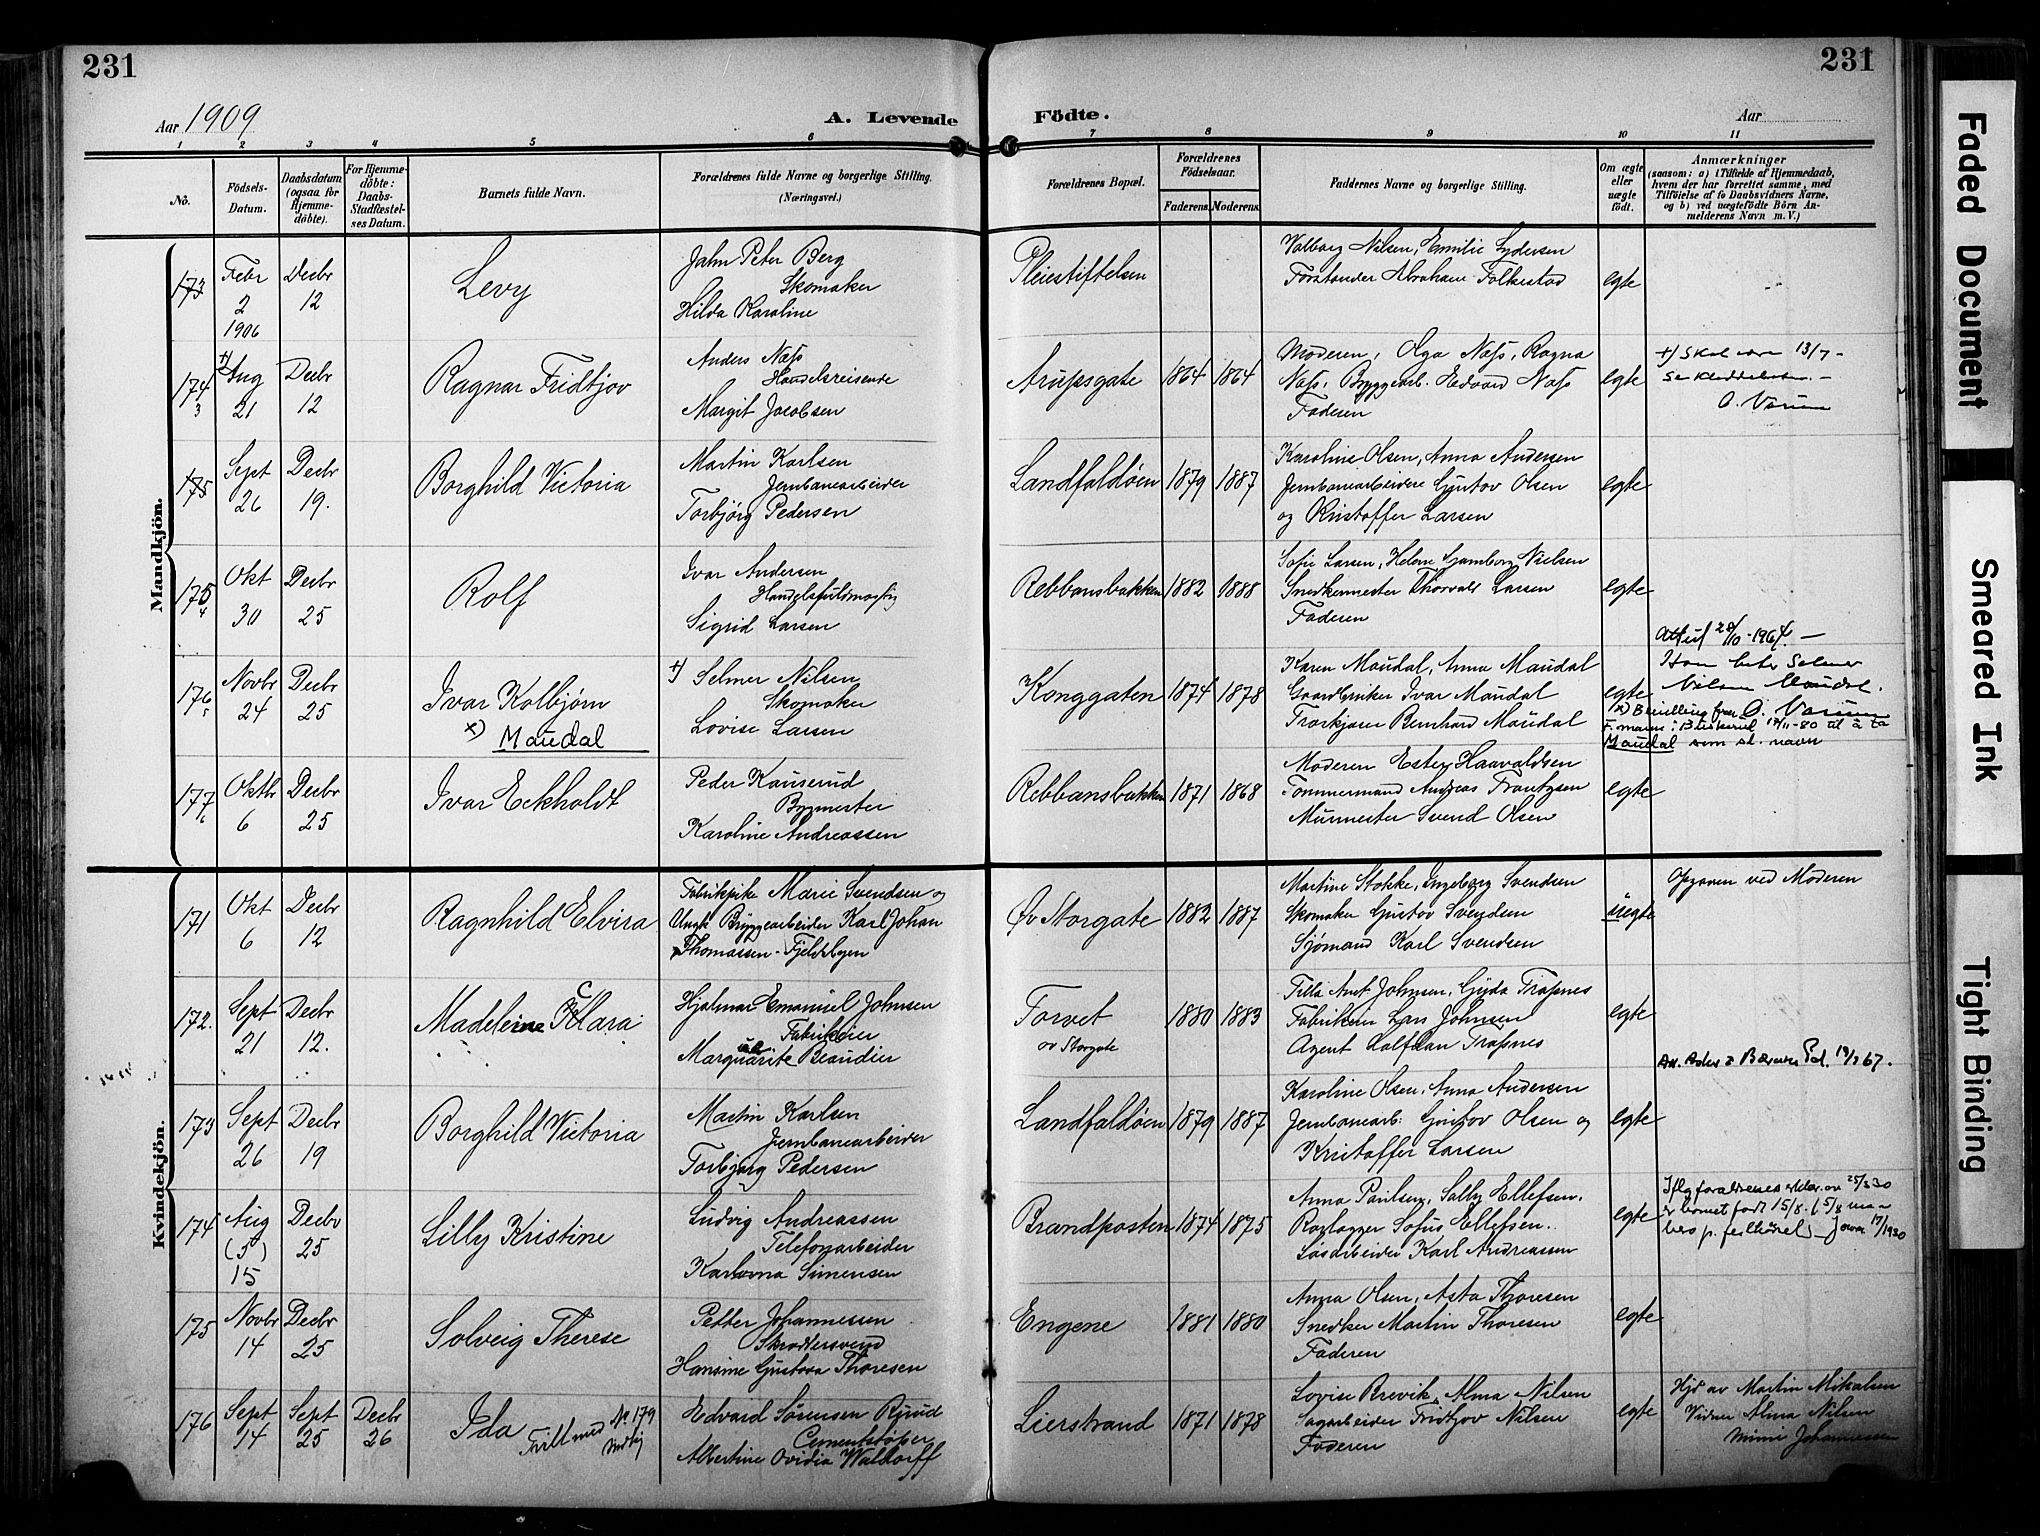 231
231
Aar 1909
A. Levende
Födte.
Aar
1 2 3 4 5 6 7 8 9 10 11
No.
Födsels-Datum.
Daabsdatum (ogsaa for Hjemmedöbte).
For Hjemmedöbte: Daabs-Stadfæstelses Datum.
Barnets fulde Navn.
Forældrenes fulde Navne og borgerlige Stilling.
(Næringsvei.)
Forældrenes Bopæl.
Forældrenes Födselsaar.
Faderens. Moderens.
Faddernes Navne og borgerlige Stilling.
Om ægte eller uægte födt.
Anmærkninger
(saasom: a) i Tilfælde af Hjemmedaab,
hvem der har forrettet samme, med
Tilföielse af to Daabsvidners Navne,
og b) ved uægtefödte Börn Anmelderens Navn m. V.)
Mandkjön.
173 Febr 2 1906 Decbr 12 Levy
Jahn Peter Berg
Skomaker
Hilda Karoline
Pleiestiftelsen
Valborg Nilsen, Emilie Lydersen
Forstander Abraham Folkestad
egte
174 3 +) Aug 21 Decbr 12 Ragnar Fridtjov
Anders Næss
Handelsreisende
Margit Jacobsen
Arupsgate 1864 1864
Moderen, Olga Næss, Ragna
Næss, Bryggearb. Edvard Næss
Faderen
egte
+) Skal være 13/7 -
175 Sept 26 Decbr 19. Borghild Victoria
Martin Karlsen
Jernbanearbeider
Torbjørg Pedersen
Landfaldøen 1879 1887
Karoline Olsen, Anna Andersen
Jernbanearbeidere Gustav Olsen
og Kristoffer Larsen
egte
175 4 Okt 30 Decbr 25 Rolf
Ivar Andersen
Handelsfuldmægtig
Sigrid Larsen
Rebbansbakken 1882 1888
Sofie Larsen, Helene Nielsen
Snedkermester Thorvald Larsen
Faderen
egte
176 5 Novbr 24 Decbr 25 Ivar Kolbjørn
x) Maudal
+) Selmer Nilsen
Skomaker
Lovise Larsen
Konggaten 1874 1878
Karen Maudal, Anna Maudal
Gaardbruker Ivar Maudal
Bernhard Maudal
egte
Attest 28/10-1964. -
Han heter Selmer
Nilsen Maudal.
x) Bevilling fra
F.mann i Buskerud 17/11-80 til å ta
Maudal som sl. navn
177 6 Oktbr 6 Decbr 25 Ivar Eckholdt
Peder Kauserud
Bygmester
Karoline Andreassen
Rebbansbakken 1871 1868
Moderen Ester Haavaldsen
Tømmermand Andreas Frantzsen
Murmester Svend Olsen
egte
Kvindekjön.
171 Okt 6 Decbr 12 Ragnhild Elvira
Fabrikpike Marie Svendsen og
Ungk. Bryggearbeider Karl Johan
Thomassen - Fjeldsbyen
Øv Storgate 1882 1887
Martine Stokke, Ingeborg Svendsen
Skomaker Gustav Svendsen
Sjømand Karl Svendsen
uegte
Opgaven ved Moderen
172. Sept 21 Decbr 12. Madeleine Clara
Hjalmar Emanuel Johnsen
Fabrikeier
Marguerite Beaudier
Torvet
øv Storgate
1880 1883
Tilla Johnsen, Gyda Trapnes
Fabrikeier Lars Johnsen
Agent Halfdan Trapnes
egte
173 Sept 26 Decbr 19 Borghild Victoria
Martin Karlsen
Jernbanearbeider
Torbjørg Pedersen
Landfaldøen 1879 1887
Karoline Olsen, Anna Andersen
Jernbanearb: Gustav Olsen og
Kristoffer Larsen
egte
174 Aug (5) 15 Decbr 25 Lilly Kristine
Ludvig Andreassen
Telefonarbeider
Karlovna Simensen
Brandposten 1874 1875
Anna Paulsen, Sally Ellefsen,
Rørlægger Sofus Ellefsen.
Løsarbeider Karl Andreassen
egte
Iflg forældrenes erklær. av 25/3 30
er barnet født 15/8. (5/8
175 Novbr 14 Decbr 25 Solveig Therese
Petter Johannessen
Skræddersvend
Hansine Gustava Thoresen
Engene 1881 1880
Anna Olsen, Asta Thoresen
Snedker Martin Thoresen
Faderen
egte
176 Sept 14 Sept 25 Decbr 26 Ida
Tvill med No. 179
Edvard Sørensen Rjuud
Cementstøper
Albertine Ovidia Waldorff
Lierstrand 1871 1878
Lovise Brevik, Alma Nilsen
Sagarbeider Fridtjov Nilsen
Faderen
egte
Hjd av Martin Mikalsen
Vidner Alma Nilsen
Mimi Johannessen
Faded Document
Smeared Ink
Tight Binding